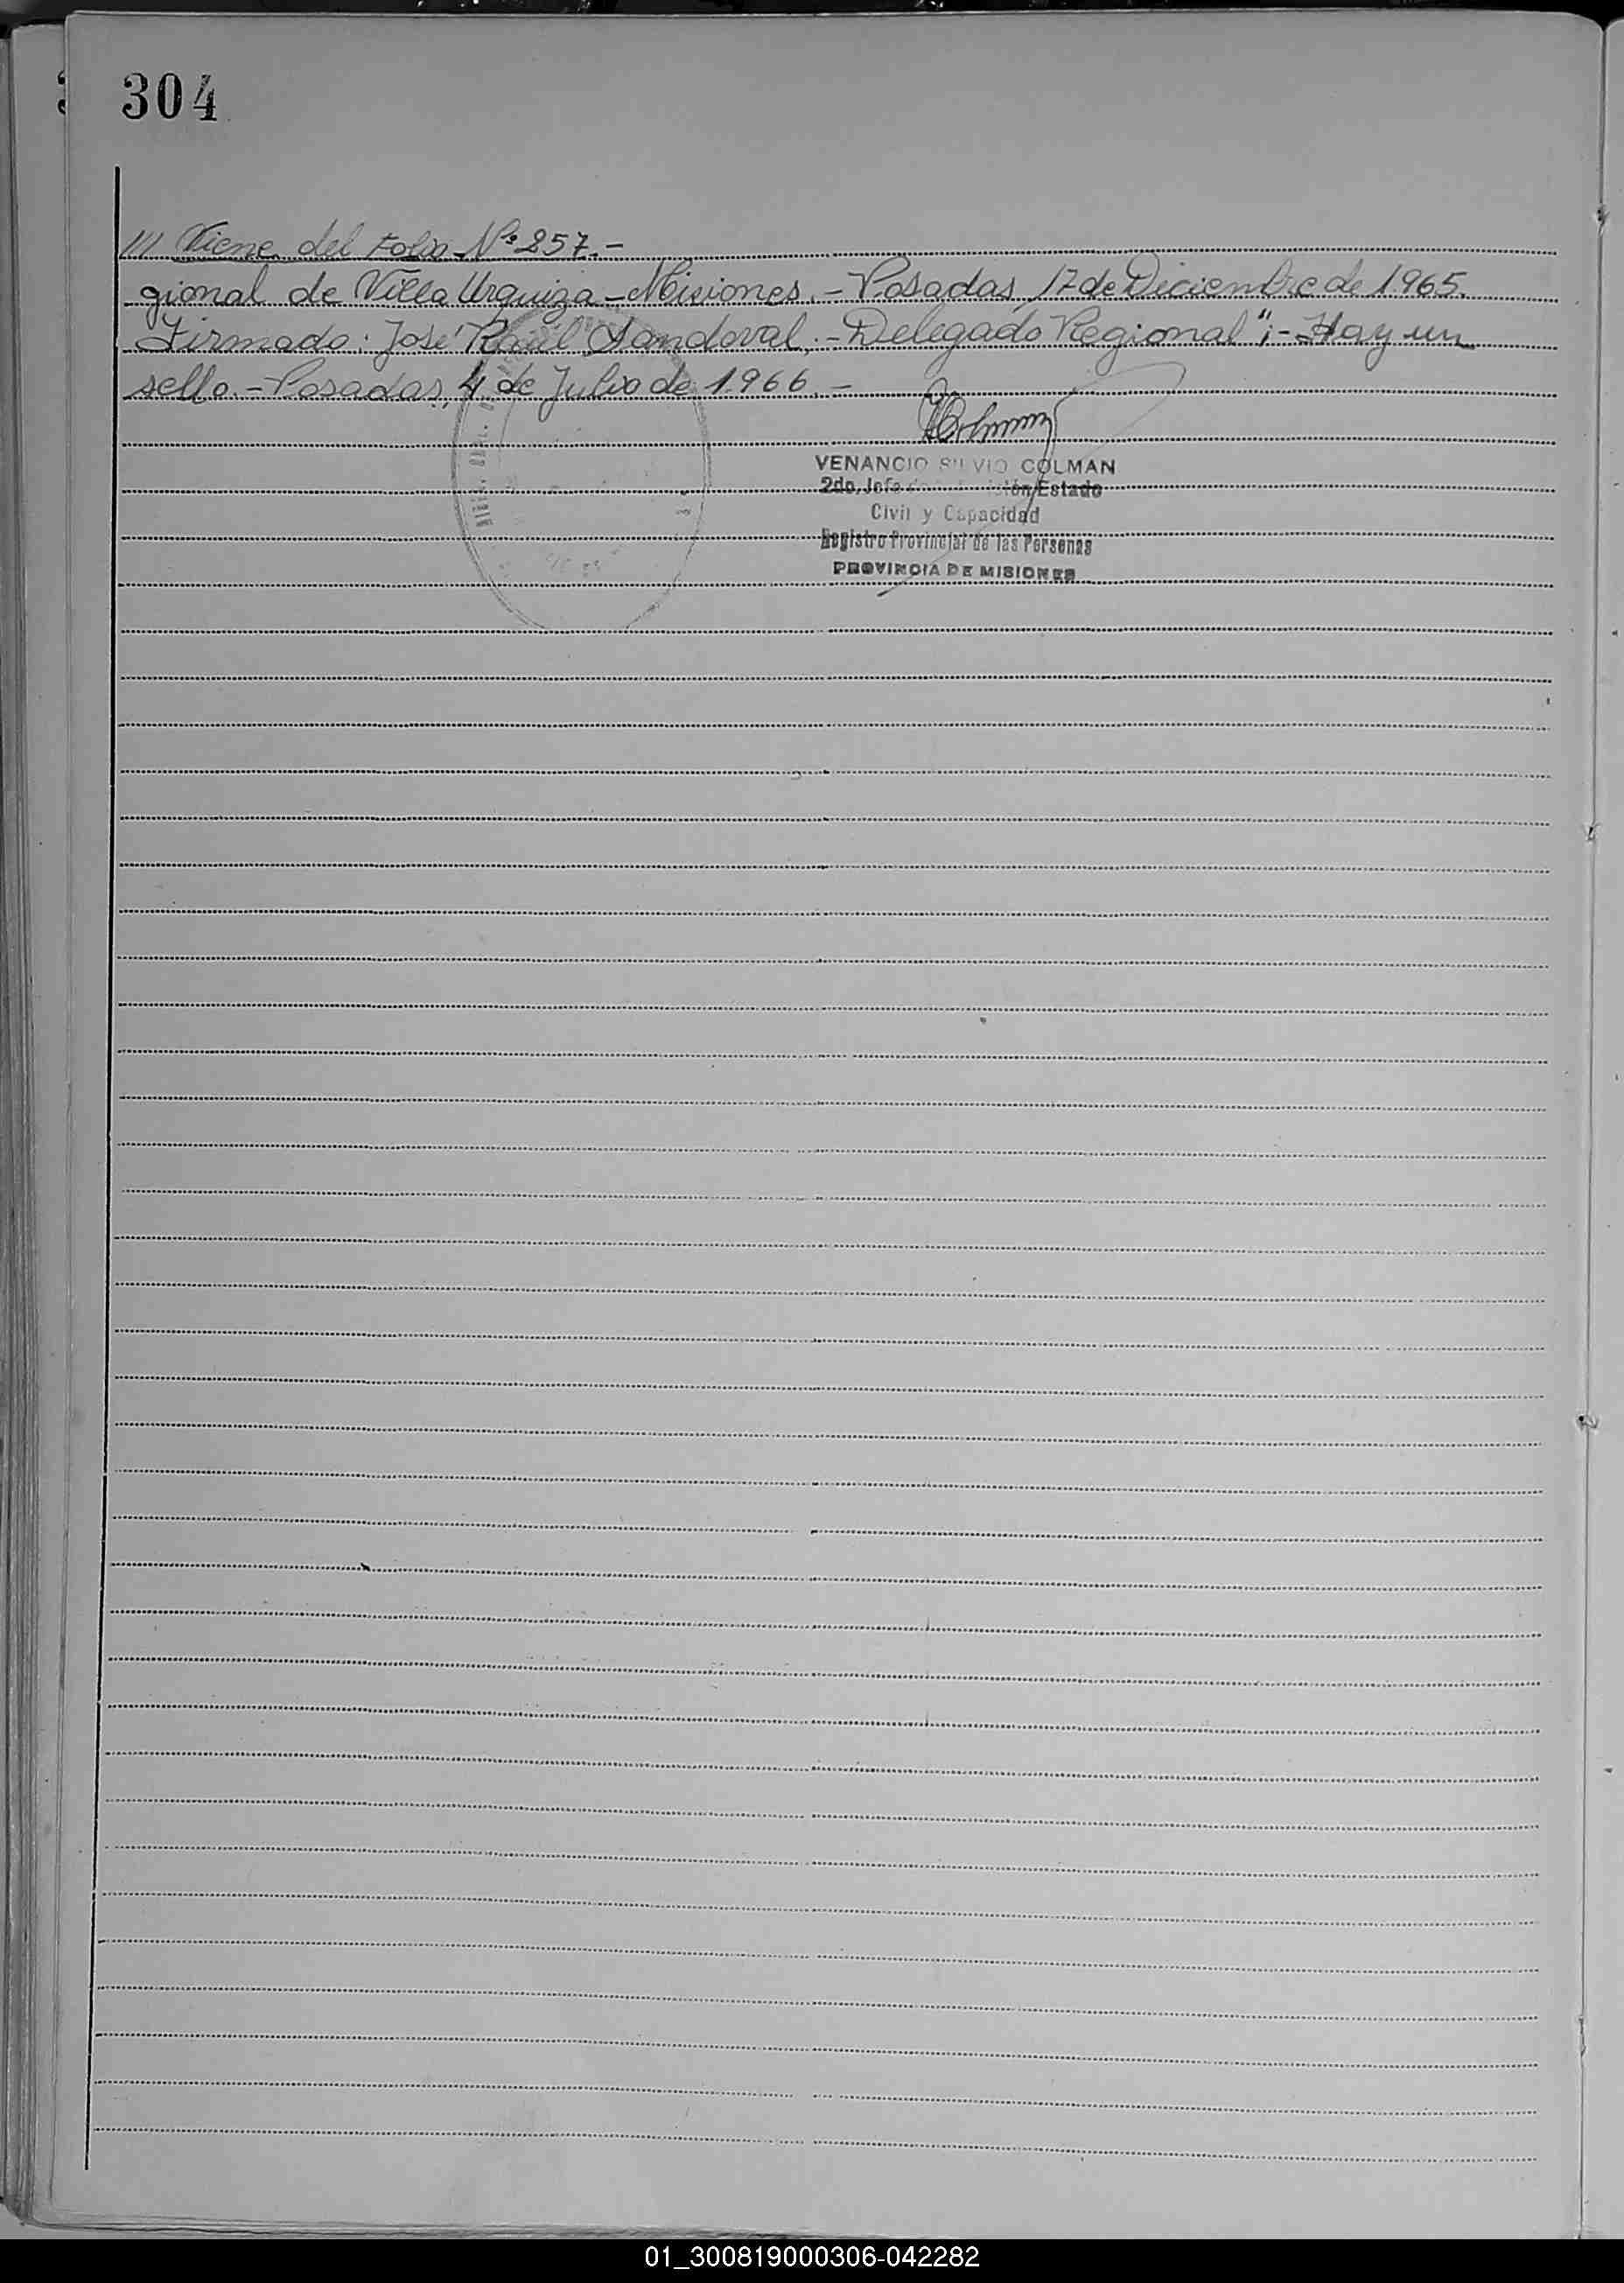 304
/// Viene del Folio Nº 257.-
gional de Villa Urquiza - Misiones.- Posadas, 17 de Diciembre de 1965.
Firmado: José Raúl Sandoval.- Delegado Regional";- Hay un
sello.- Posadas, 4 de Julio de 1966.-
VENANCIO SILVIO COLMAN
2do. Jefe Estado
Civil y Capacidad
Registro Provincial de las Personas
PROVINCIA DE MISIONES
01_300819000306-042282